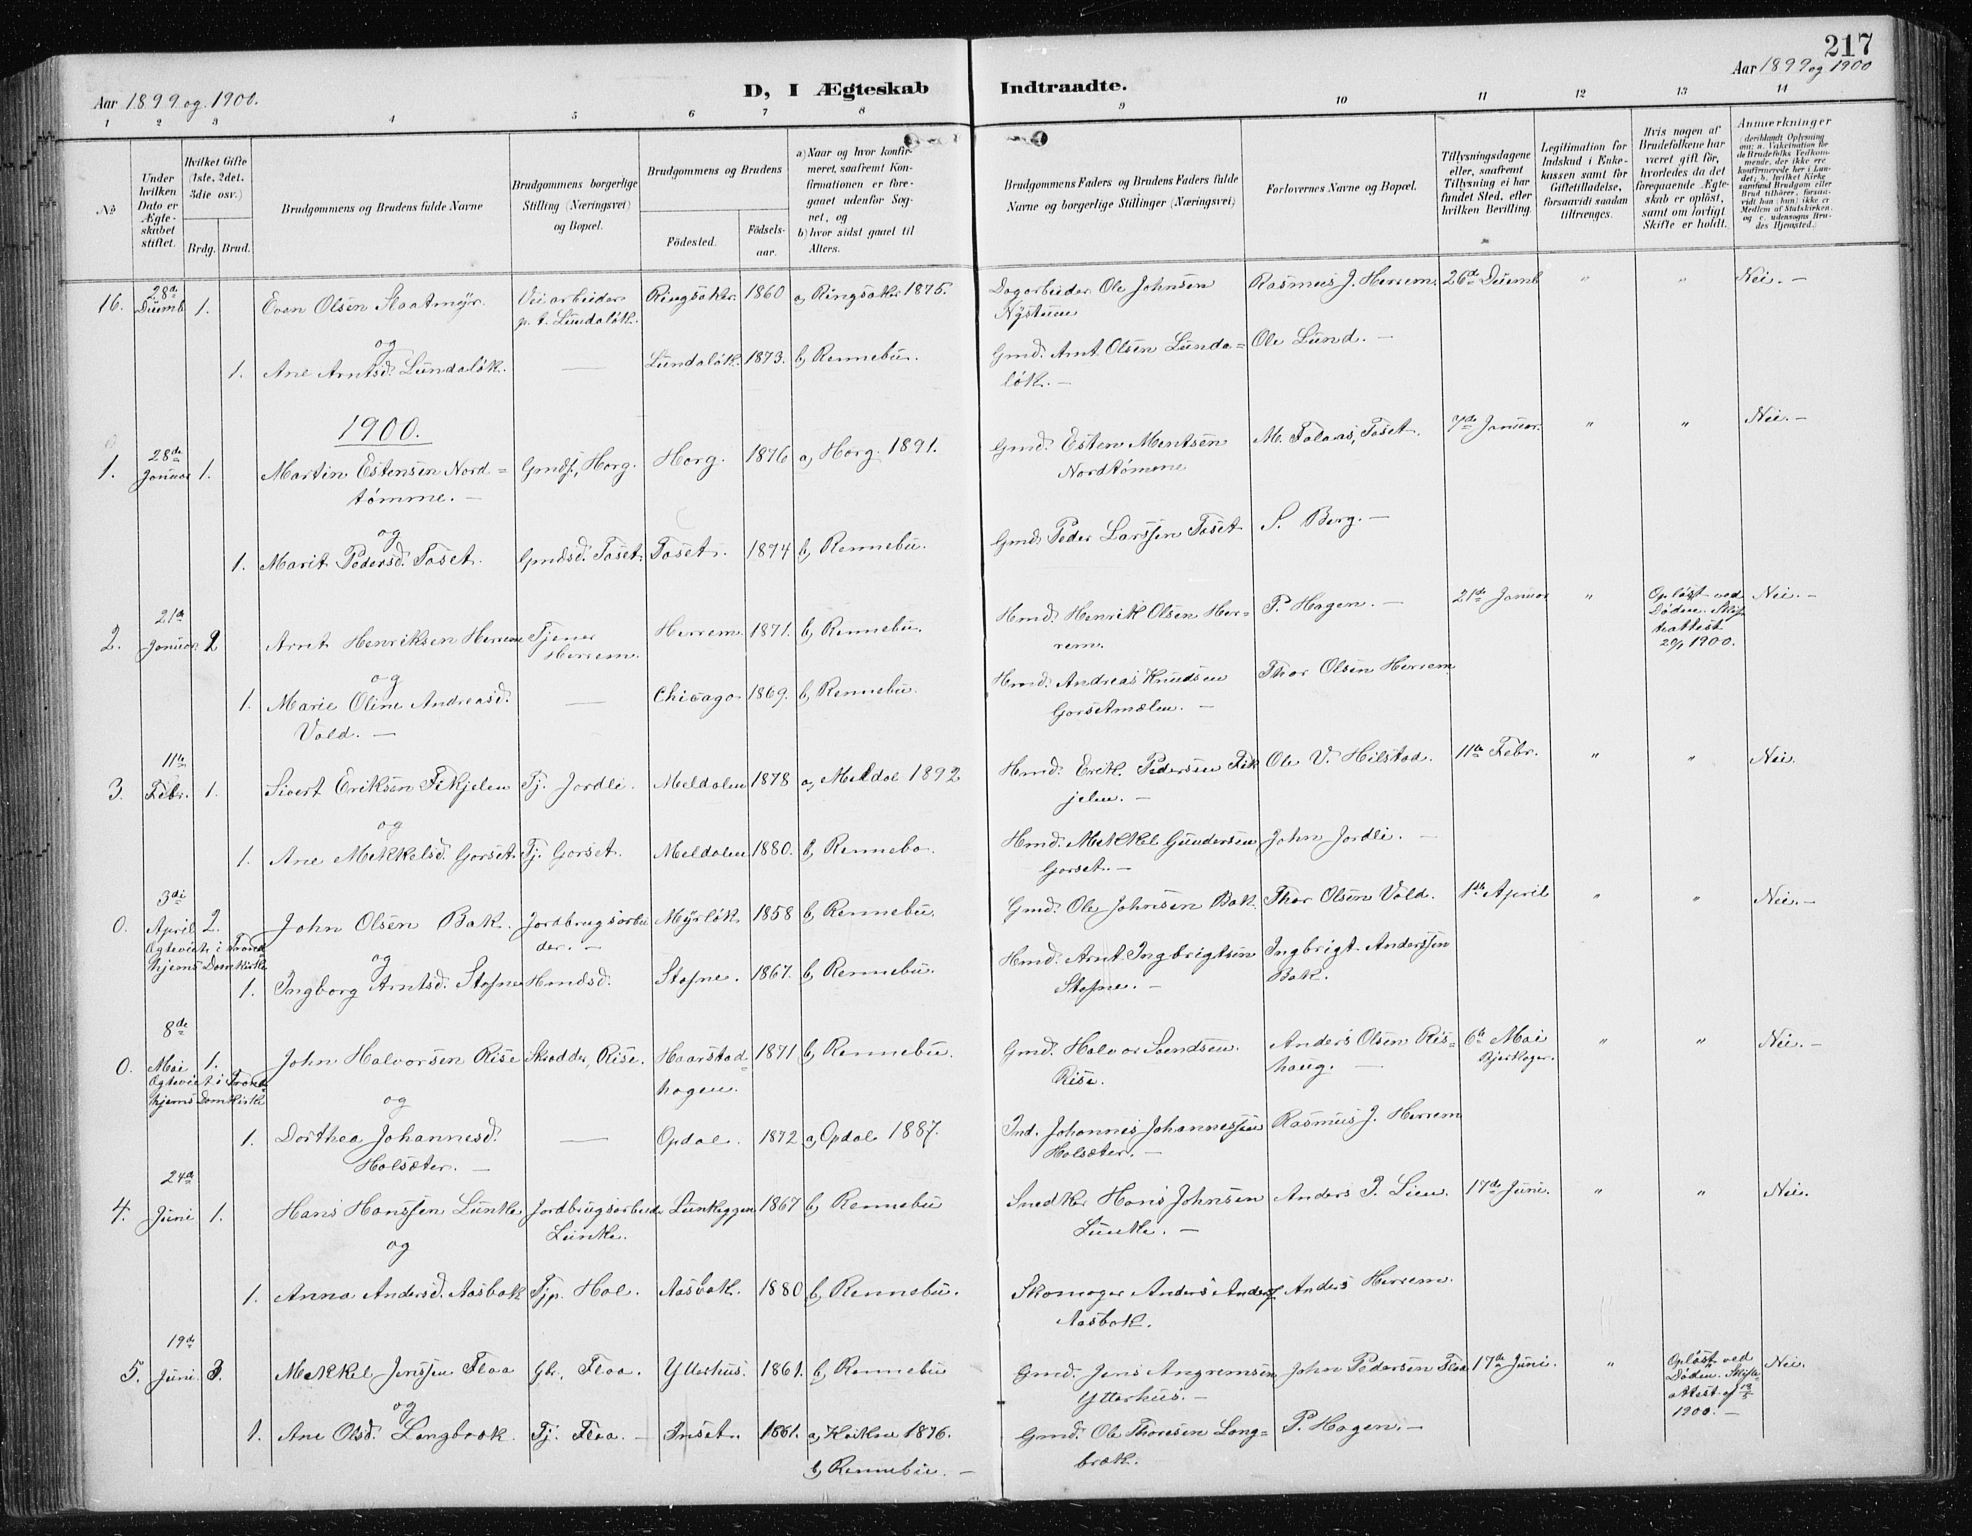 217
Aar 1899 og 1900.
D, I Ægteskab Indtraadte.
Aar 1899 og 1900
1 2 3 4 5 6 7 8 9 10 11 12 13 14
No
Under hvilken Dato er Ægteskabet stiftet.
Hvilket Gifte (1ste, 2det, 3die osv.)
Brdg. Brud.
Brudgommens og Brudens fulde Navne
Brudgommens borgerlige Stilling (Næringsvei) og Bopæl.
Brudgommens og Brudens
Födested. Födselsaar.
a) Naar og hvor konfirmeret, saafremt Konfirmationen er foregaaet udenfor Sognet, og
b) hvor sidst gaaet til Alters.
Brudgommens Faders og Brudens Faders fulde Navne og borgerlige Stillinger (Næringsvei)
Forlovernes Navne og Bopæl.
Tillysningsdagene eller, saafremt Tillysning ei har fundet Sted, efter hvilken Bevilling.
Legitimation for Indskud i Enkekassen samt for Giftetilladelse, forsaavidt saadan tiltrænges.
Hvis nogen af Brudefolkene har været gift för, hvorledes da det foregaaende Ægteskab er oplöst, samt om lovligt Skifte er holdt.
Anmærkninger
deriblandt Oplysning om: a. Vakcination for de Brudefolks Vedkommende, der ikke ere konfirmerede her i Landet; b. hvilket Kirkesamfund Brudgom eller Brud tilhörer, forsaavidt han (hun) ikke er Medlem af Statskirken, og c. udensogns Brudes Hjemsted.
16. 28de Dcemb 1. Even Olsen Slaatmyr. Veiarbeider p. t. Lundaløk. Ringsaker. 1860 a, Ringsaker 1875. Dagarbeider Ole Johnsen Nystuen Rasmus J. Herrem. 26de Dcemb " " Nei. —
og
1. Ane Arntsd. Lundaløk. — Lundaløk. 1873. b, Rennebu. Gmd. Arnt Olsen Lundaløk. — Ole Lund. —
1900.
1. 28de Januar 1. Martin Estensen Nordtømme. — Gmds., Horg. Horg. 1876 a, Horg. 1891. Gmd. Esten Mentsen Nordtømme M. Foraas, Toset. 7de Januar. " " Nei. —
og
1. Marit Pedersd. Toset. Gmdsd. Toset. Toset. 1874 b, Rennebu. Gmd. Peder Larssen Toset S. Berg. —
2. 21de Januar. 2 Arnt Henriksen Herrem Tjener Herrem. Herrem. 1871. b, Rennebu. Hmd. Henrik Olsen Herrem. P. Hagen. — 21de Januar " Opløst ved Døden. Skifteattest 20/1 1900. Nei. —
og
1. Marie Oline Andreasd. Vold. — — Chicago. 1869. b, Rennebu. Hmd. Andreas Knudsen Gorsetmælen. — Thor Olsen Herrem.
3. 11te Febr. 1. Sivert Eriksen Fikjelen Tj. Jordli. Meldalen 1878 a, Meldal 1892 Hmd. Erik Pederssen Fikjelen. — Ole V. Hilstad. 11te Febr. " " Nei.
og
1. Ane Mekkelsd. Gorset. Tj. Gorset. Meldalen 1880. b, Rennebo. Hmd. Mekkel Gundersen Gorset. — John Jordli. —
0. 3die April 2. John Olsen Bak. Jordbrugsarbeider. — Myrløk. 1858 b, Rennebu. Gmd. Ole Johnsen Bak. Thor Olsen Vold. 1ste April " " Nei. —
Egteviet i Trondhjems Domkirke
og
1. Ingborg Arntsd. Stafne Hmdsd. Stafne. 1867. b, Rennebu. Hmd. Arnt Ingbrigtsen Stafne. — Ingbrigt Anderssen Bak.
0. 8de Mai 1. John Halvorsen Rise Skrædder, Rise. Haarstadhagen. 1871 b, Rennebu. Gmd. Halvor Svendsen Rise. Anders Olsen Rishaug. — 6te Mai Bjerkager. " " Nei. —
Egteviet i Trondhjems Domkirke
og
1. Dorthea Johannesd. Holsæter. — — Opdal. 1872 a, Opdal 1887. Ind. Johannes Johannessen Holsæter. — Rasmus J. Herrem
4. 24de Juni 1. Hans Hanssen Lunke Jordbrugsarbeider Lunke. Lunkeggen 1867 b, Rennebu Snedker Hans Johnsen Lunke. — Anders P. Lien. 17de Juni. " " Nei.
og
1. Anna Andersd. Aasbak Tjp. Hol. Aasbak. 1880 b, Rennebu. Skomager Anders Anders. Aasbak. Anders Herrem.
5. 19de Juni. 3 Mekkel Jenssen Floa Gbr., Floa. Ytterhus. 1861. b, Rennebu Gmd. Jens Angremsen Ytterhus. — John Pedersen Floa 17de Juni. " Opløst ved Døden. Skifteattest af 1900. — Nei.
og
1. Ane Olsd. Langbræk. Tj. Floa. — Inset. 1861. a, Kvikne 1876. b, Rennebu. — Gmd. Ole Thoresen Langbræk. P. Hagen. —